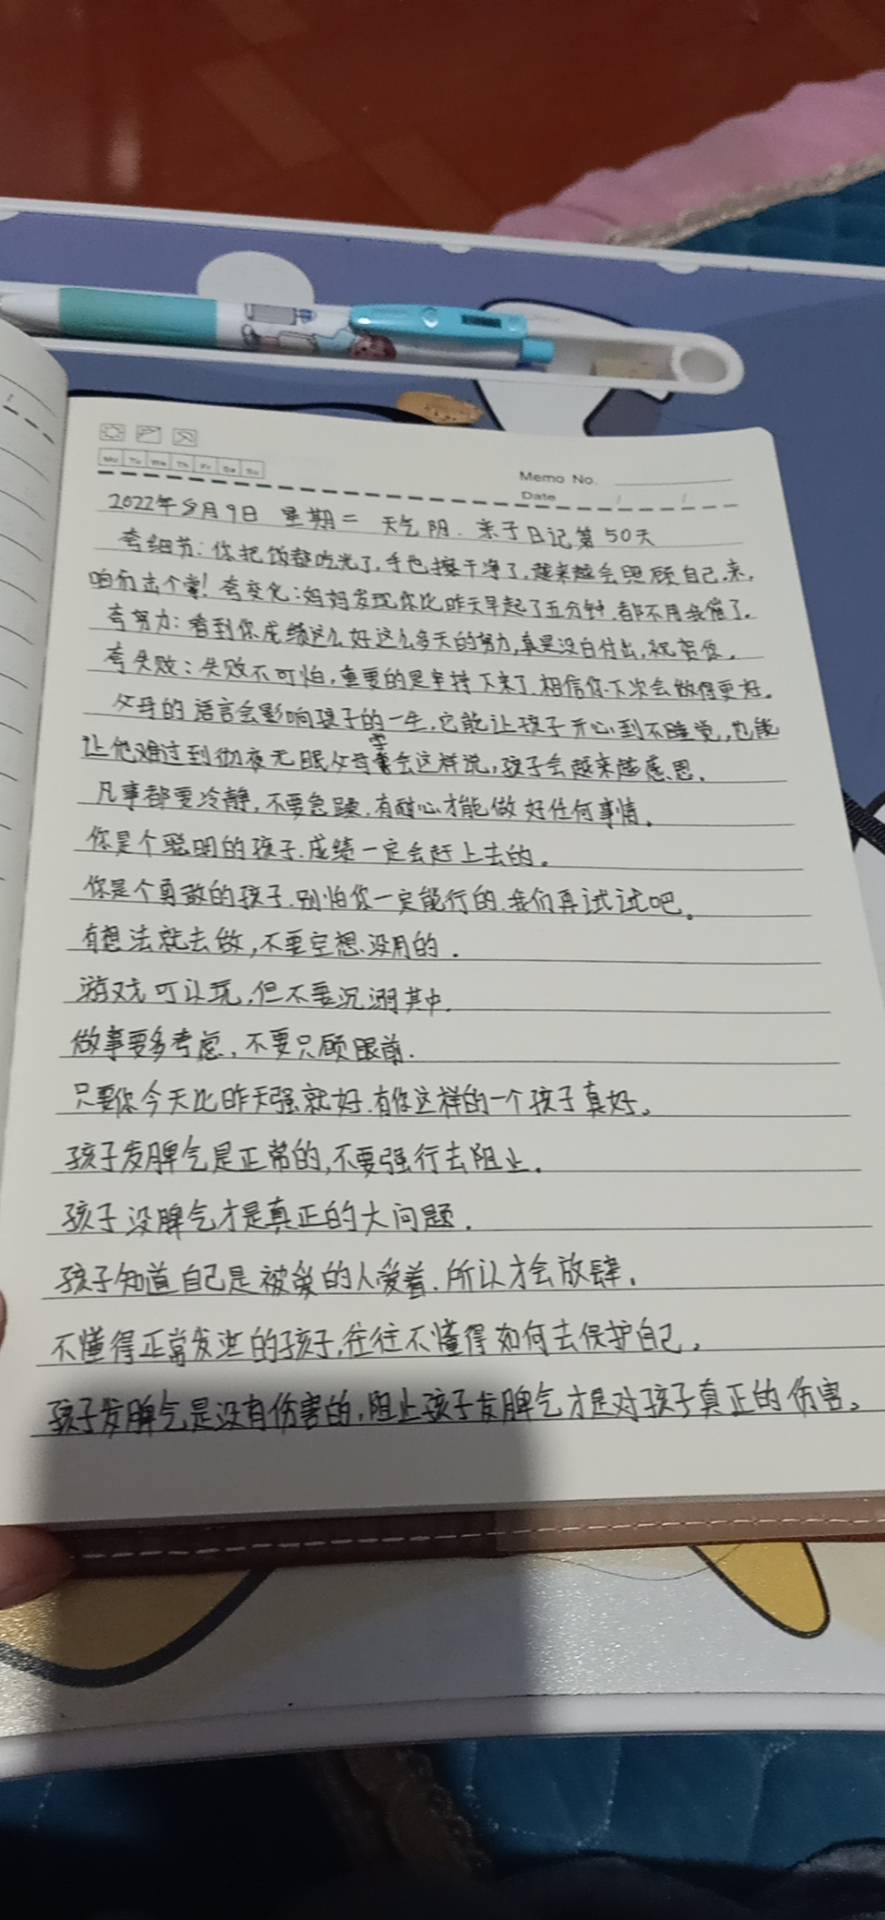 Mo Tu We Th Fr Sa Su
Memo No.
Date / /
2022年8月9日 星期二 天气阴. 亲子日记第50天
夸细节:你把饭都吃光了,手也擦干净了,越来越会照顾自己,来,
咱们击个掌!夸变化:妈妈发现你比昨天早起了五分钟,都不用我催了。
夸努力:看到你成绩这么好这么多天的努力,真是没白付出,祝贺你。
夸失败:失败不可怕,重要的是坚持下来了,相信你下次会做得更好。
父母的语言会影响孩子的一生,它能让孩子开心到不睡觉,也能
让他难过到彻夜无眠父母学会这样说,孩子会越来越感恩。
凡事都要冷静,不要急躁,有耐心才能做好任何事情。
你是个聪明的孩子,成绩一定会赶上去的。
你是个勇敢的孩子,别怕你一定能行的,我们再试试吧。
有想法就去做,不要空想、没用的.
游戏可以玩,但不要沉溺其中.
做事要多考虑,不要只顾眼前.
只要你今天比昨天强就好,有你这样的一个孩子真好。
孩子发脾气是正常的,不要强行去阻止.
孩子没脾气才是真正的大问题.
孩子知道自己是被爱的人爱着,所以才会放肆.
不懂得正常发泄的孩子,往往不懂得如何去保护自己.
孩子发脾气是没有伤害的,阻止孩子发脾气才是对孩子真正的伤害。